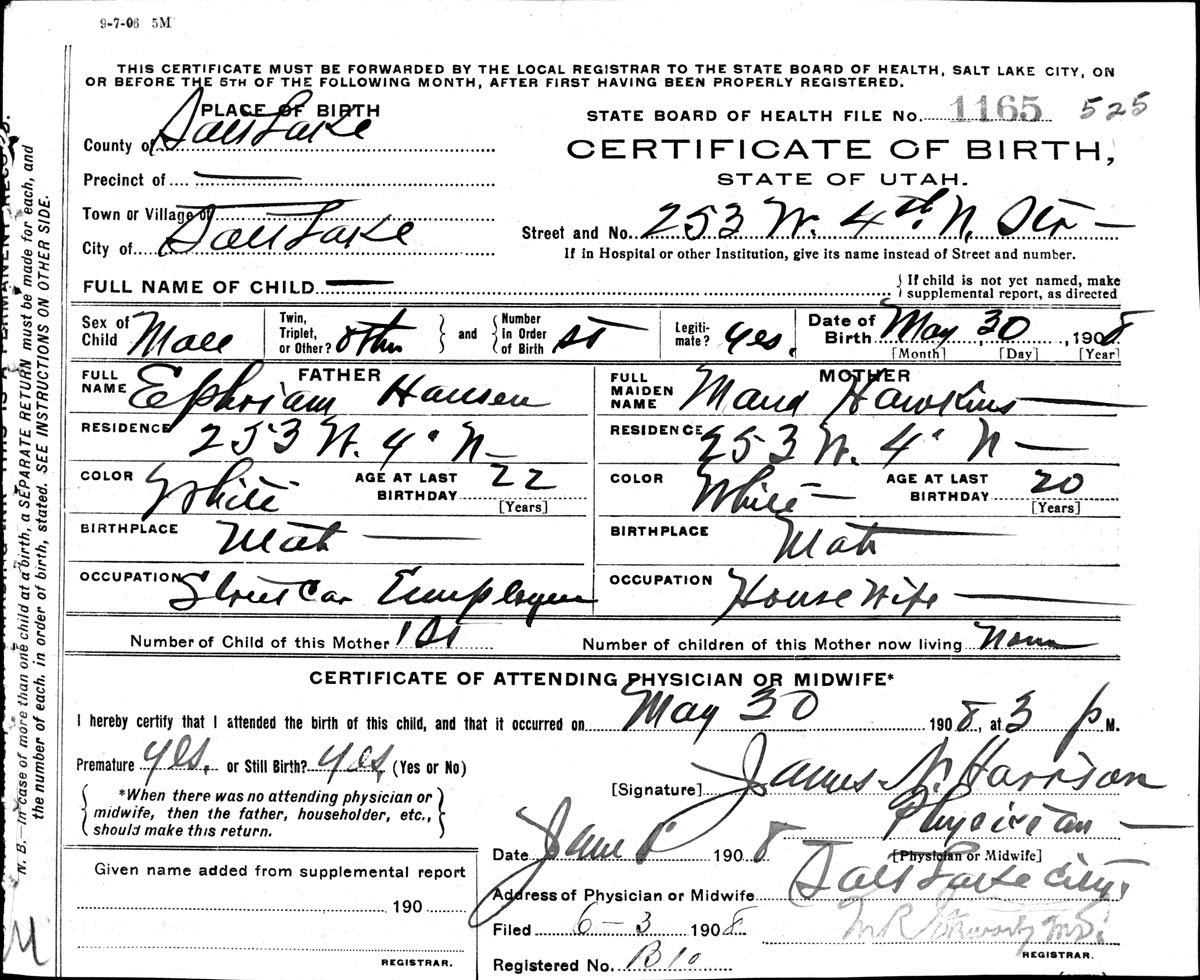 9-7-06 5M
THIS CERTIFICATE MUST BE FORWARDED BY THE LOCAL REGISTRAR TO THE STATE BOARD OF HEALTH, SALT LAKE CITY, ON
OR BEFORE THE 5TH OF THE FOLLOWING MONTH, AFTER FIRST HAVING BEEN PROPERLY REGISTERED.
PLACE OF BIRTH
County of Salt Lake
Precinct of —
Town or Village of —
City of Salt Lake
STATE BOARD OF HEALTH FILE No. 1165 525
CERTIFICATE OF BIRTH,
STATE OF UTAH.
Street and No. 253 W. 4th N. Str —
If in Hospital or other Institution, give its name instead of Street and number.
FULL NAME OF CHILD — { If child is not yet named, make
supplemental report, as directed
Sex of Child Male Twin, Triplet, or Other? and Number In Order of Birth Legiti- mate? yes. Date of Birth May 30, 1908
[Month] [Day] [Year]
FATHER
FULL NAME Ephriam Hansen
RESIDENCE 253 W. 4" N —
COLOR White AGE AT LAST BIRTHDAY 22
[Years]
BIRTHPLACE Utah —
OCCUPATION Street Car Employee
MOTHER
FULL MAIDEN NAME Maud Hawkins —
RESIDENCE 253 W. 4" N —
COLOR White — AGE AT LAST BIRTHDAY 20
[Years]
BIRTHPLACE Utah
OCCUPATION House Wife —
Number of Child of this Mother 1st Number of children of this Mother now living None
CERTIFICATE OF ATTENDING PHYSICIAN OR MIDWIFE*
I hereby certify that I attended the birth of this child, and that it occurred on May 30 1908, at 3 p M.
Premature yes, or Still Birth? yes, (Yes or No)
*When there was no attending physician or
midwife, then the father, householder, etc.,
should make this return.
[Signature] James N. Harrison
Physician —
[Physician or Midwife]
Date June 1908
Address of Physician or Midwife Salt Lake City
Filed 6-3 1908
REGISTRAR.
Registered No. B10
Given name added from supplemental report
190
REGISTRAR.
N. B.—In case of more than one child at a birth, a SEPARATE RETURN must be made for each, and
the number of each, in order of birth, stated. SEE INSTRUCTIONS ON OTHER SIDE.
M